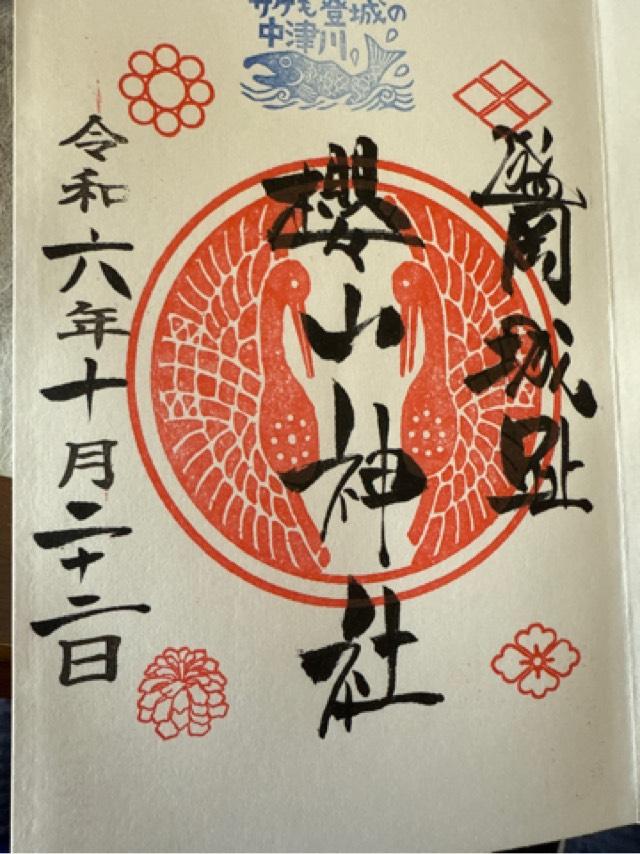 サケも登城の
中津川
盛岡城趾
櫻山神社
令和六年十月二十二日